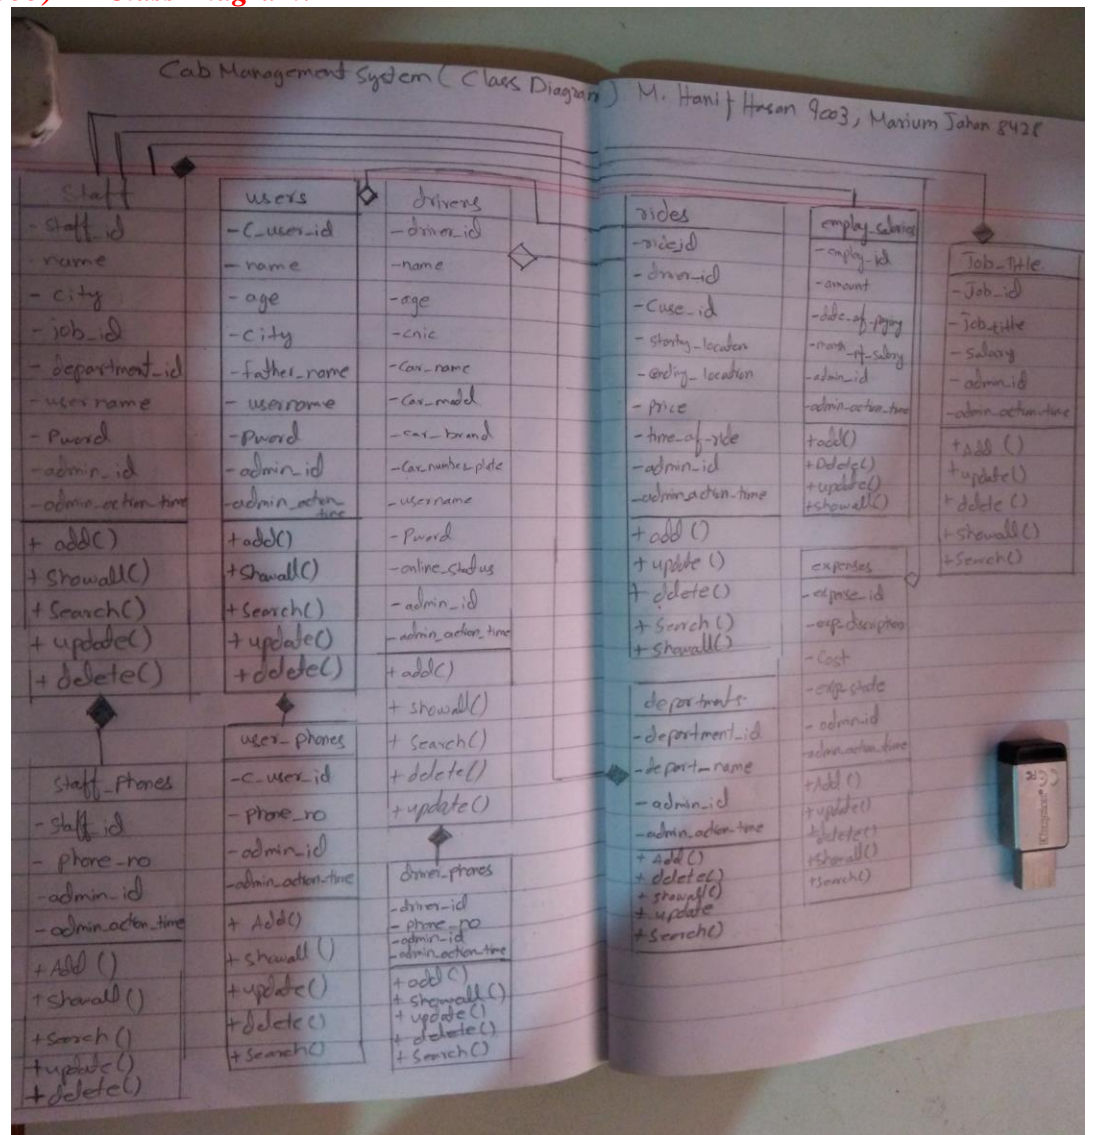 Class Diagram:
Cab Management System ( Class Diagram ) M. Hanif Hasan 9003, Marium Jahan 8428
Staff
- staff_id
name
- city
- job_id
- department_id
- user name
- Pword
- admin_id
- admin_action_time
+ add()
+ showall()
+ search()
+ update()
+ delete()
staff_phones
- staff_id
- phone_no
- admin_id
- admin_action_time
+ Add ()
+ showall()
+ search ()
+ update()
+ delete()
users
- C_user_id
- name
- age
- city
- father_name
- username
- Pword
- admin_id
- admin_action_
time
+ add()
+ showall()
+ search()
+ update()
+ delete()
user_phones
- c_user_id
- phone_no
- admin_id
- admin_action_time
+ Add()
+ showall ()
+ update()
+ delete()
+ search()
drivers
- driver_id
- name
- age
- cnic
- Car_name
- Car_model
- car_brand
- Car_number_plate
- username
- Pword
- online_status
- admin_id
- admin_action_time
+ add()
+ showall()
+ search()
+ delete()
+ update()
driver_phones
- driver_id
- phone_no
- admin_id
- admin_action_time
+ add ()
+ showall()
+ update()
+ delete()
+ search()
rides
- ride_id
- driver_id
- location
- location
- Price
- time_of_ride
- admin_id
- admin_action_time
+ add ()
+ update ()
+ delete()
+ search ()
+ showall()
departments
- department_id
- depart_name
- admin_id
- admin_action_time
+ Add()
+ delete()
+ showall()
+ update
+ search()
employ_salaries
- employ_id
- amount
- date_of_paying
- month_of_salary
- admin_id
- admin_action_time
+ add()
+ Delete()
+ update()
+ showall()
expenses
- expense_id
- Cost
- admin_id
- admin_action_time
+ Add ()
+ update()
+ delete()
+ showall()
+ search()
Job_Title
- Job_id
- job_title
- salary
- admin_id
- admin_action_time
+ Add ()
+ update()
+ delete ()
+ showall()
+ search()